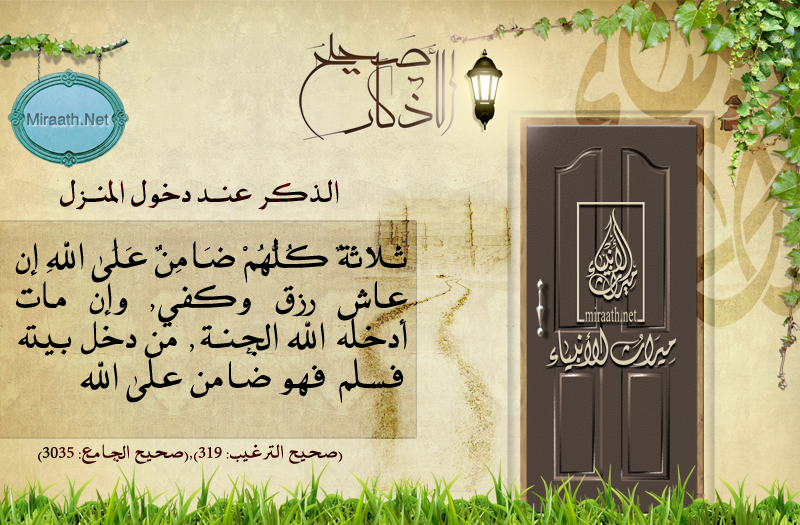 صحيح الأذكار
Miraath.Net
الذكر عند دخول المنزل
ثلاثةٌ كُلُّهُمْ ضَامِنٌ عَلَى اللّهِ إن
عاش رزق وكفي, وإن مات
أدخله الله الجنة, من دخل بيته
فسلم فهو ضامن على الله
(صحيح الترغيب: 319),(صحيح الجامع: 3035)
ميراث الأنبياء
miraath.net
ميراث الأنبياء